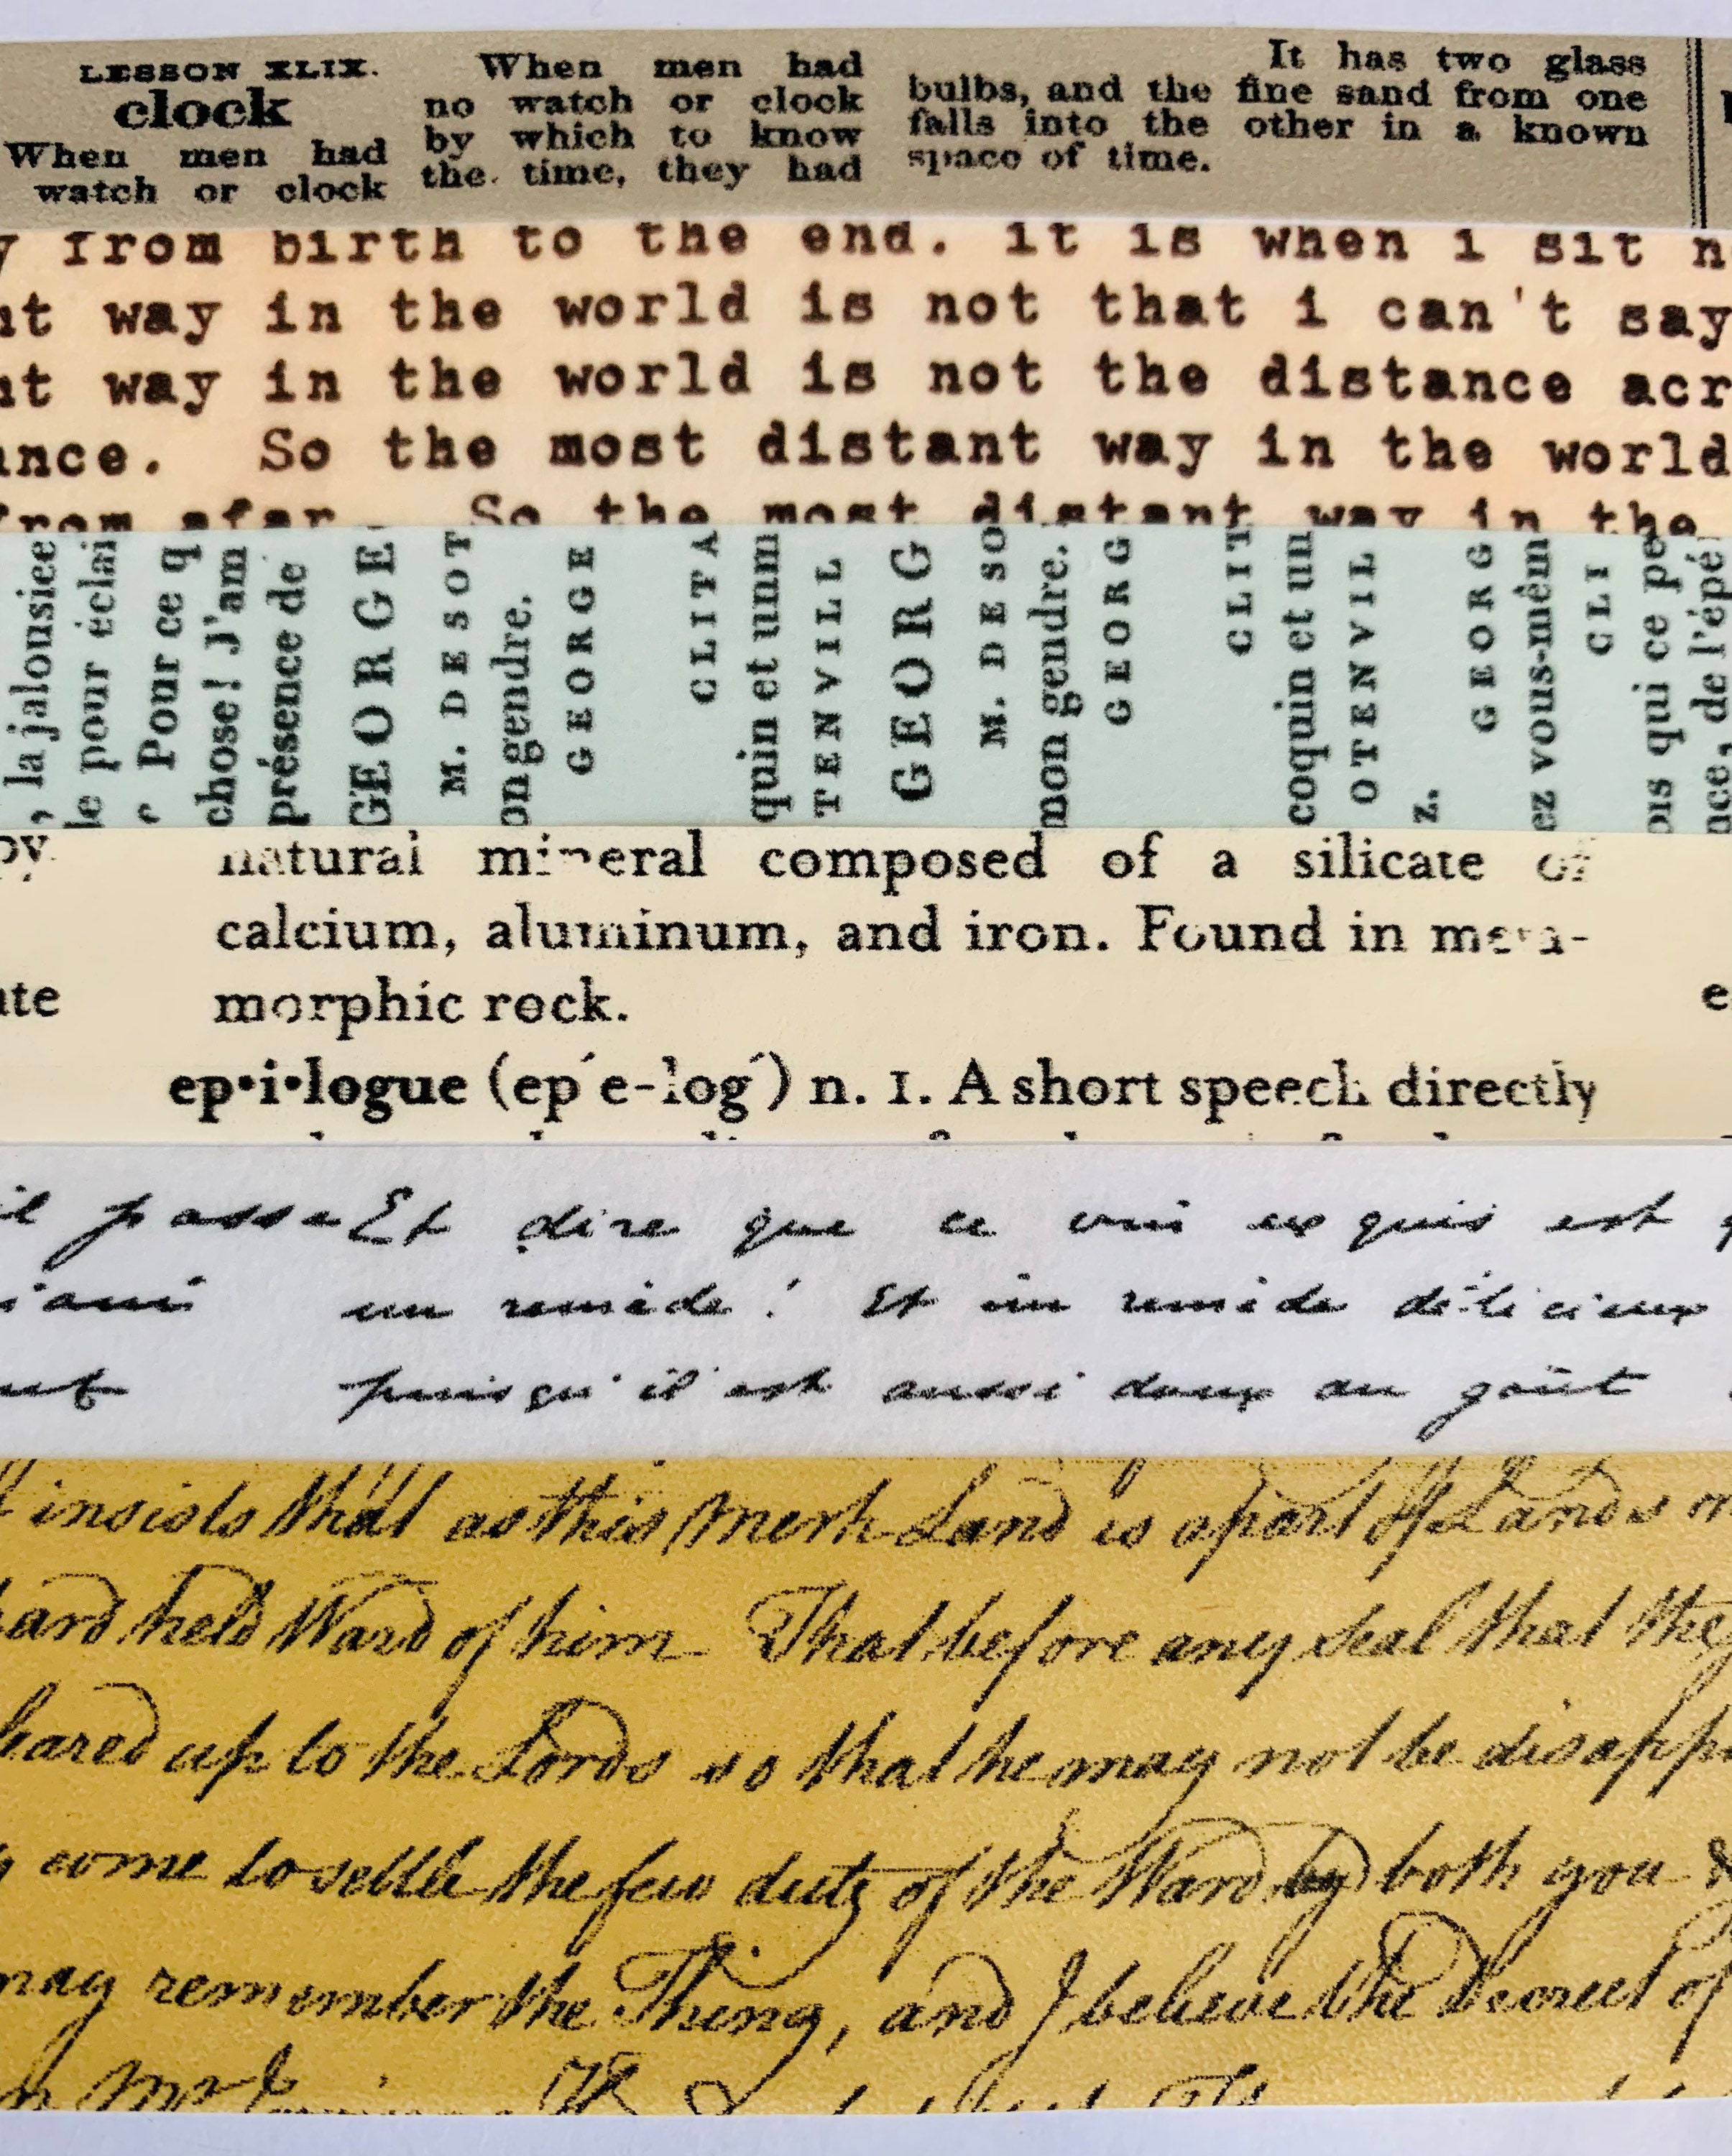 LESSON XLIX.
clock
When men had
watch or clock
When men had
no watch or clock
by which to know
the time, they had
It has two glass
bulbs, and the fine sand from one
falls into the other in a known
space of time.
y from birth to the end. it is when i sit n
nt way in the world is not that i can't say
nt way in the world is not the distance acr
ance. So the most distant way in the world
from afar. So the most distant way in the
, la jalousiee
le pour éclai
Pour ce q
chose! J'am
présence de
GEORGE
M. DE SOT
on gendre.
GEORGE
CLITA
quin et unm
TENVILL
GEORG
M. DE SO
mon gendre.
GEORG
CLIT
coquin et un
OTENVIL
z.
GEORG
ez vous-mêm
CLI
ous qui ce pe
nce, de l'épé
py.
natural mineral composed of a silicate of
calcium, aluminum, and iron. Found in meta-
ate morphic rock. e
ep•i•logue (ep´e-log´) n. 1. A short speech directly
il passe Et dire que ce vin exquis est q
iani un remède! Et un remède délicieux
puisqu'il est aussi doux au goût
insists that as this Merk Land is a part of Lands
held Ward of him That before any seal that they
up to the Lords so that he may not be disappo
come to settle the few duty of the Ward by both you &
may remember the Thing, and I believe the Decreet of